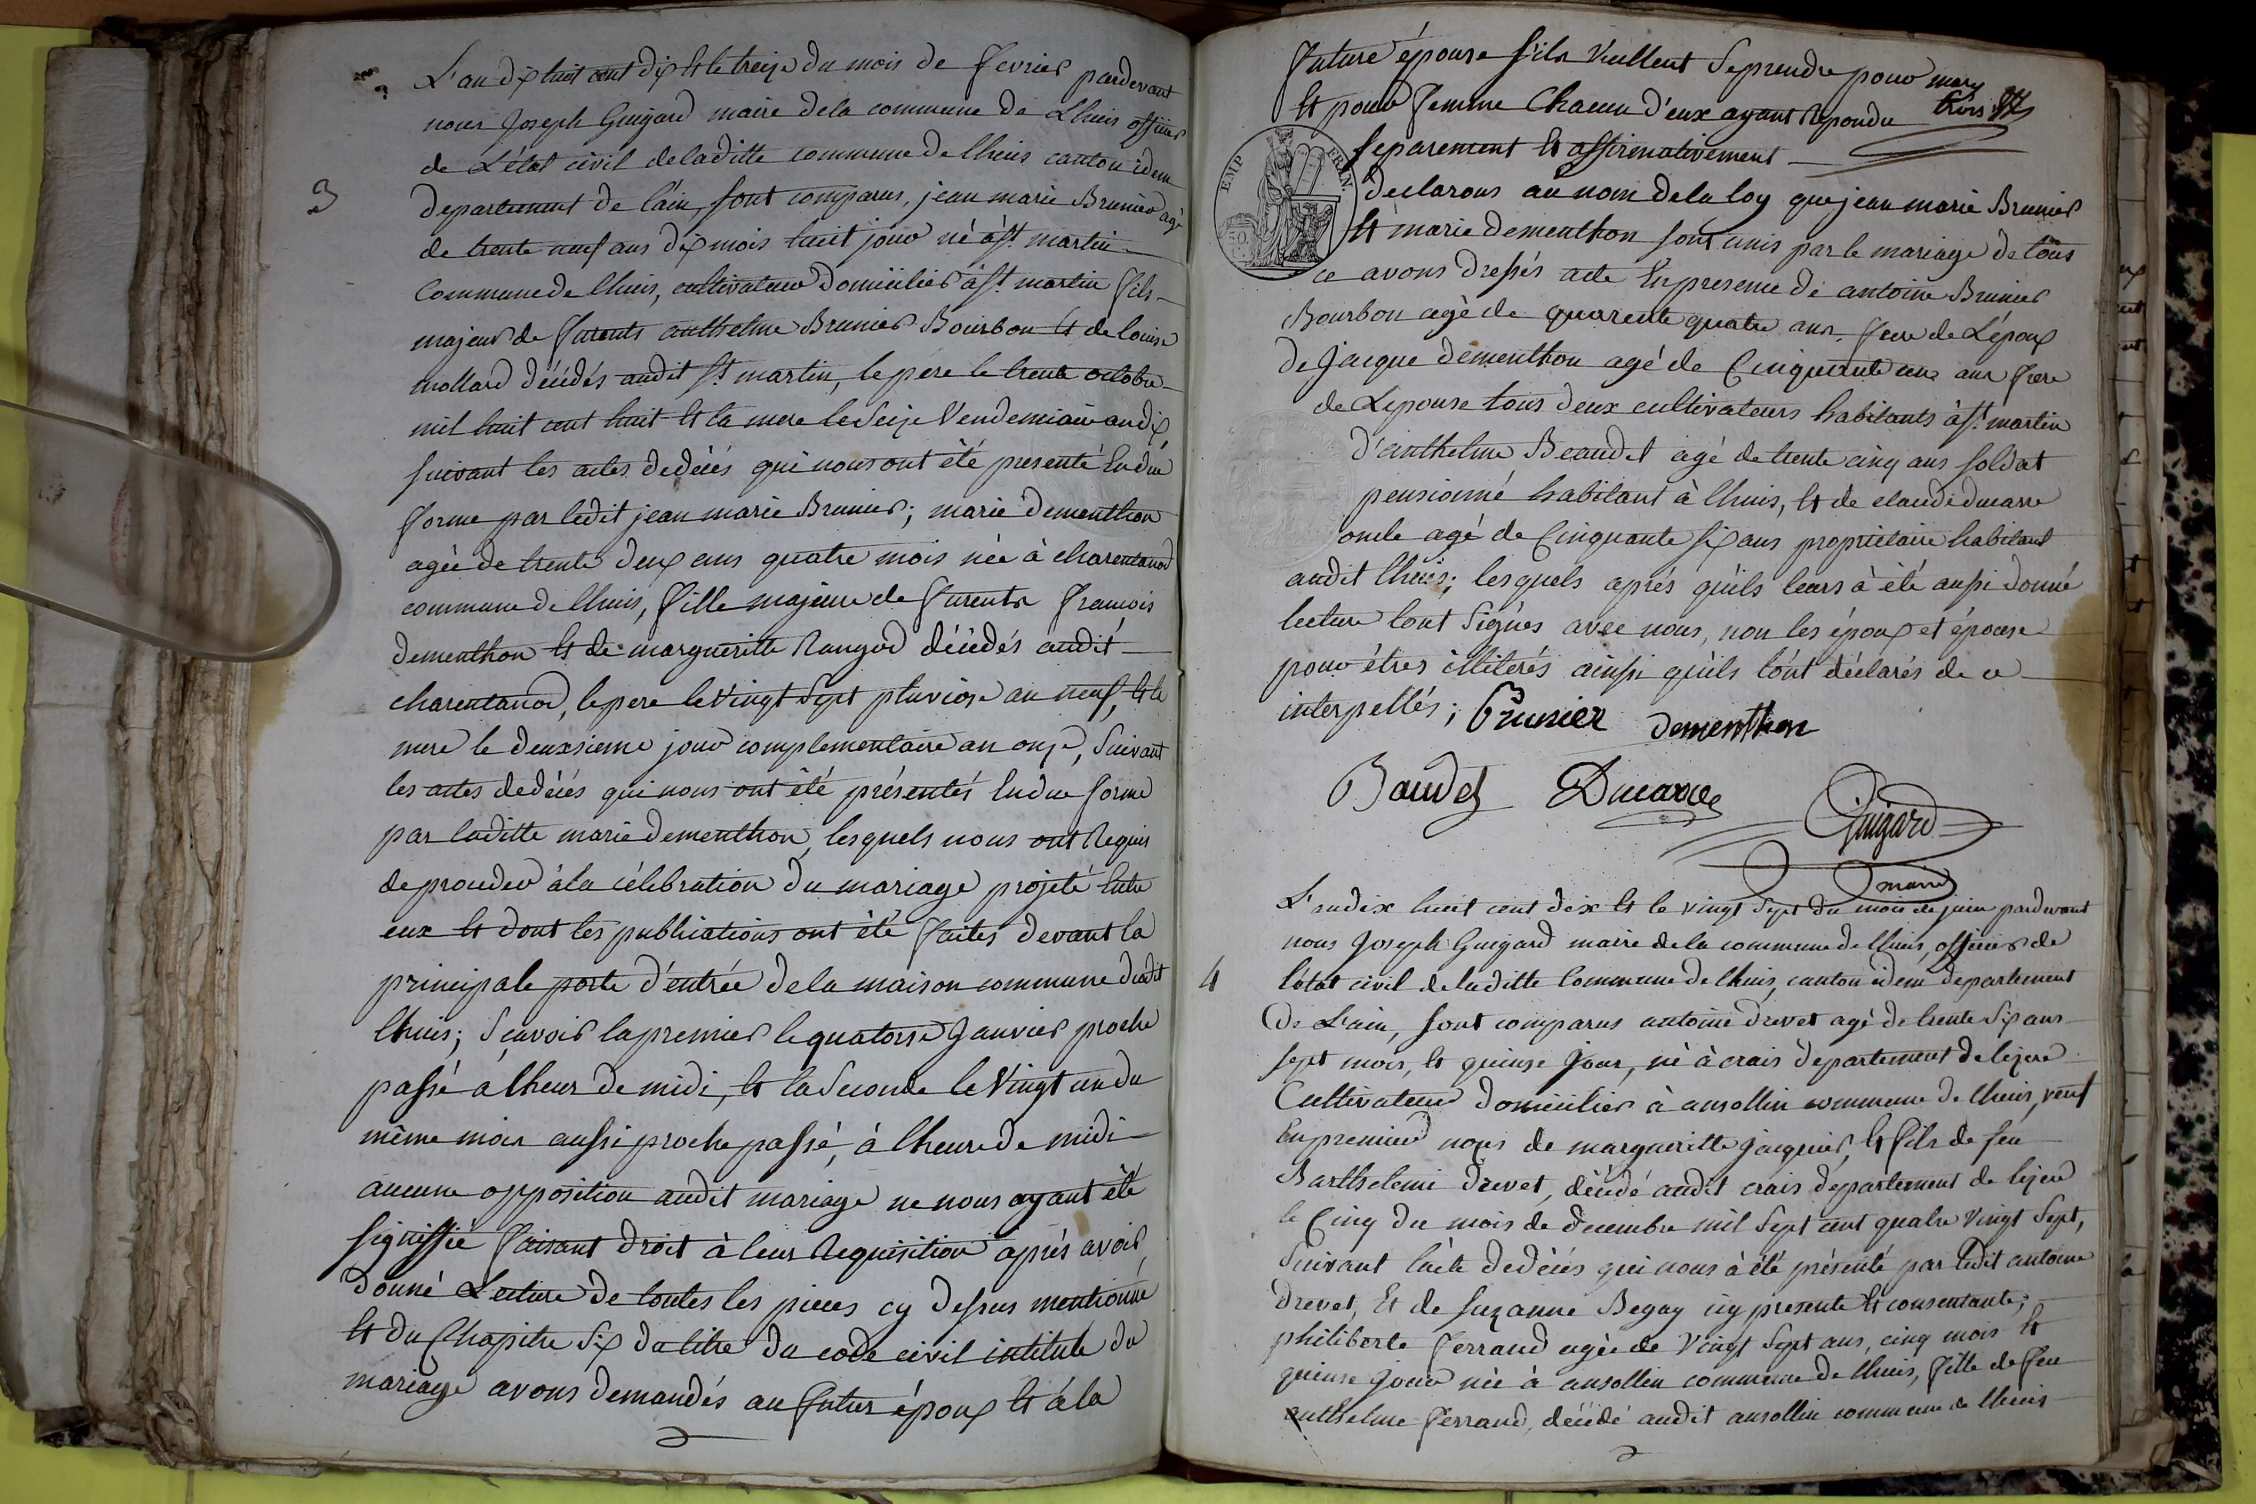 L'an dix huit cent dix et le treize du mois de fevrier pardevant
nous joseph Guigard maire de la commune de Lhuis officier
de L'état civil de laditte commune de lhuis canton idem
3
departement de l'ain, sont comparus, jean marie Brunier agé
de trente neuf ans dix mois huit jour né à st. martin
Commune de lhuis, cultivateur Domicilier à st. martin fils
majeur de furents anthelme Brunier Bourbon et de louise
mollard décédés audit st. martin, le pere le trente octobre
mil huit cent huit et la mere le seize Vendemiaire an dix
suivant les actes dedécés qui nous ont été presenté En due
forme par ledit jean marie Brunier; marie dementhon
agée de trente deux ans quatre mois née à charentanod
commune de lhuis, fille majeure de furents françois
dementhon et de marguerite Rangod décédés audit
charentanod, le pere le vingt sept pluviose an neuf, et la
mere le deuxsieme jour complementaire an onze, suivant
les actes dedécés qui nous ont été présentés En due forme
par laditte marie dementhon, lesquels nous ont Requis
de proceder à la célébration du mariage projeté Entre
eux et dont les publications ont été faites devant la
principale porte d'entrée de la maison commune dudit
lhuis; sçavoir la premier le quatorse Janvier proche
passé a lheur de midi, et la seconde le Vingt un du
même mois aussi proche passé, à lheure de midi
aucune opposition audit mariage ne nous ayant été
signiffié faisant droit à leur Requisition aprés avoir
donné Lecture de toutes les pieces cy dessus mentionné
et du Chapitre six du titre du code civil intitule du
mariage avons demandés au futur époux et à la
future épouse s'ils Veullent se prendre pour mary
et pour femme Chacun d'eux ayant Repondu
separement et affirmativement
EMP. FRAN.
declarons au nom de la loy que jean marie Brunier
et marie dementhon sont unis par le mariage de tous
ce avons dressés acte En presence de antoine Brunier
Bourbon agé de quarente quatre ans, frere de L'époux
de jacque dementhon agé de Cinquante un ans frere
de Lepouse tous deux cultivateurs habitants à st. martin
d'anthelme Beaudet agé de trente cinq ans soldat
pensionné habitant à lhuis, et de claude ducarre
oncle agé de Cinquante six ans proprietaire habitant
audit lhuis; lesquels aprés qu'ils leurs à été aussi donné
lecture l'ont signés avec nous, non les époux et épouse
pour êtres illiterés ainsi qu'ils l'ont déclarés de ce
interpellés; Brunier dementhon
Baudet Ducarre
Guigard
maire
L'andix huit cent dix et le vingt sept du mois de juin pardevant
nous Joseph Guigard maire de la commune de lhuis, officier de
4
l'état civil de laditte Commune de lhuis, canton idem departement
De L'ain, sont comparus antoine drevet agé de trente six ans
sept mois, et quinse jour, né à crais departement de lizere
Cultivateur domicilier à ansollin commune de lhuis, veuf
En premier nops de margueritte jacquier, et fils de feu
Barthelemi Drevet, décédé audit crais departement de lizere
le Cinq du mois de decembre mil sept cent quatre vingt sept,
suivant l'acte dedécés qui nous à été présenté par ledit antoine
drevet, Et de suzanne Begay icy presente et consentante;
philiberte ferrand agée de Vingt sept ans, cinq mois et
quinse jour née à ansollin commune de lhuis, fille de feu
anthelme ferrand, décédé audit ansollin commune de lhuis